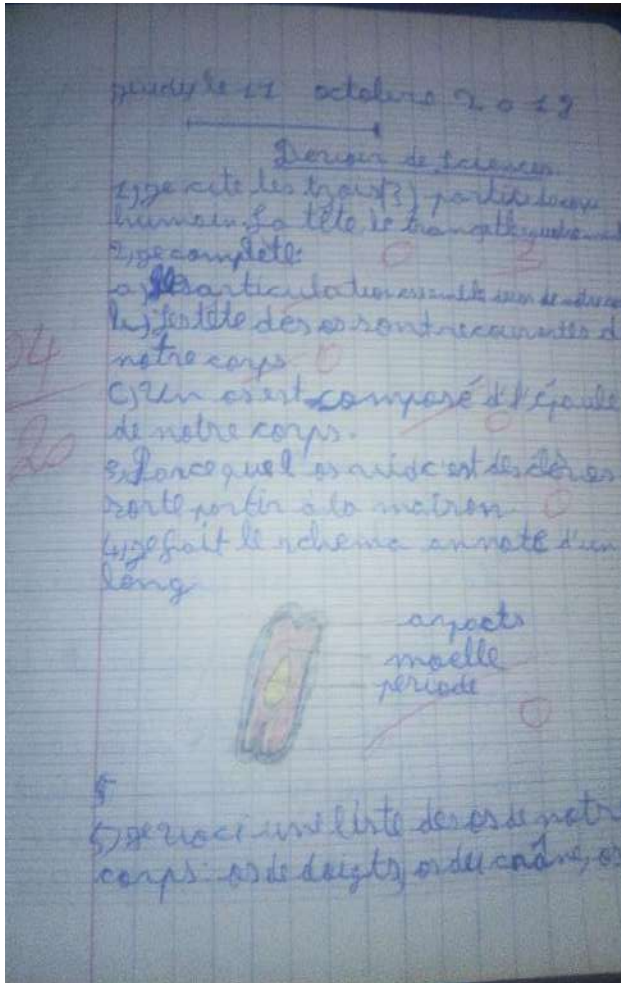 jeudy le 11 octobre 2018
Devoir de Sciences
1) je cite les trois (3) partie du corps
humain. La tête, le tronc et les
2) je complète:
0 3
a) les articulation de notre
b) les tête des os sont recouvertes d
notre corps. 0
04
20
C) Un os est composé d l'épaule
0
de notre corps.
3) Parce que l os c'est des
sorte partir à la maison 0
4) je fait le schema annoté d'un
long
aspects
moelle
periode
0
5
5) je voici une liste des os de notr
corps: os de doigts, os du crâne, os